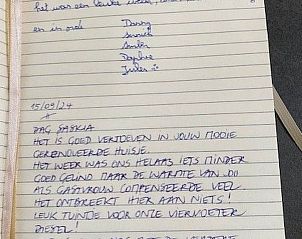 het was een leuke
en in orde Danny
Daphne
Jules
15/09/24
DAG SASKIA
HET IS GOED VERTOEVEN IN JOUW MOOIE
GERENOVEERDE HUISJE.
HET WEER WAS ONS HELAAS IETS MINDER
GOED GEZIND MAAR DE WARMTE VAN JOU
ALS GASTVROUW COMPENSEERDE VEEL.
HET ONTBREEKT HIER AAN NIETS!
LEUK TUINTJE VOOR ONZE VIERVOETER
DIESEL!